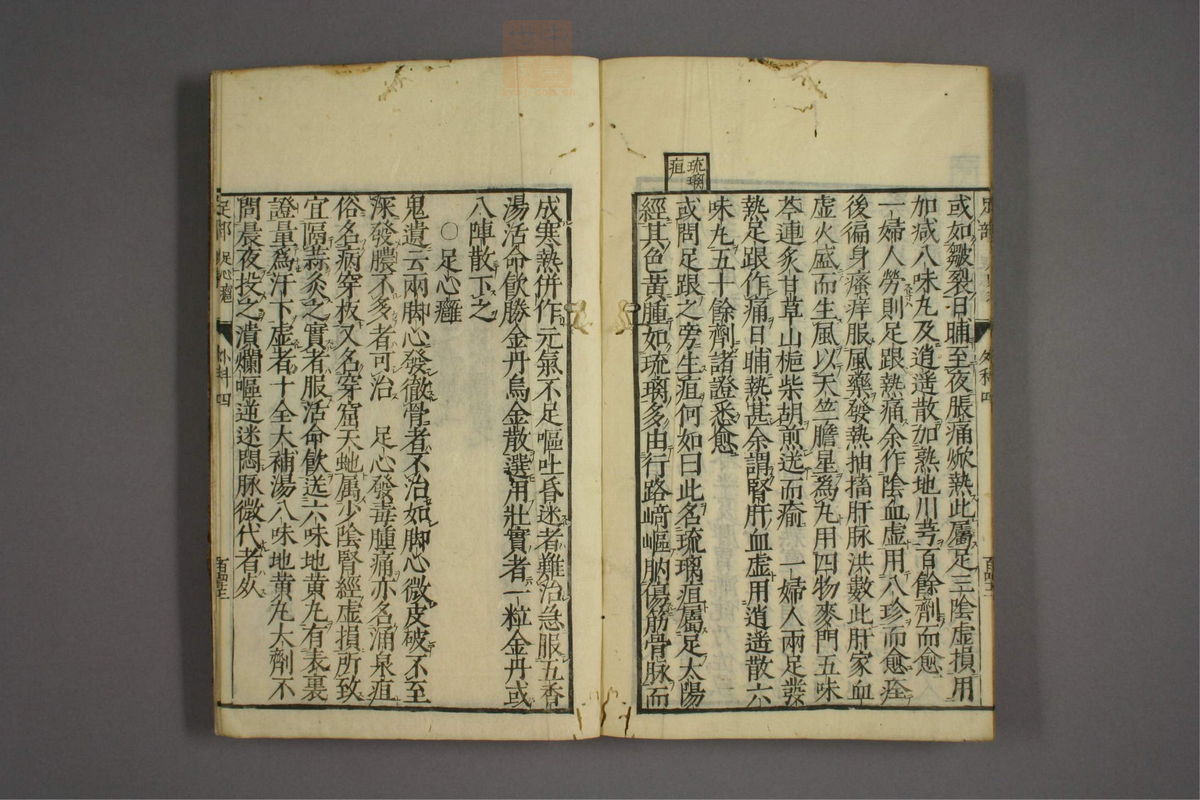 琉璃
疽
或如皺裂日晡至夜脹痛焮熱此屬足三陰虛損用
加减八味丸及逍遥散加熟地川芎百餘劑而愈
一婦人勞則足跟熱痛余作陰血虛用八珍而愈痊
後徧身瘙痒服風藥發熱抽搐肝脉洪數此肝家血
虛火盛而生風以天竺膽星為丸用四物麥門五味
芩連炙甘草山梔柴胡煎送而瘉 一婦人兩足發
熱足跟作痛日晡熱甚余謂腎肝血虛用逍遥散六
味丸五十餘劑諸證悉愈
或問足跟之旁生疽何如曰此名琉璃疽屬足太陽
經其色黄腫如琉璃多由行路崎嶇胕傷筋骨脉而
成寒熱併作元氣不足嘔吐昏迷者難治急服五香
湯活命飲勝金丹烏金散選用壯實者一粒金丹或
八陣散下之
○足心癰
鬼遺云兩脚心發徹骨者不治如脚心微皮破不至
深發膿不多者可治 足心發毒腫痛亦名涌泉疽
俗名病穿板又名穿窟天虵属少陰腎經虛損所致
宜隔蒜灸之實者服活命飲送六味地黄丸有表裏
證量為汗下虛者十全大補湯八味地黄丸大劑不
問晨夜投之潰爛嘔逆迷悶脉微代者死
足部 足心癰 外科四